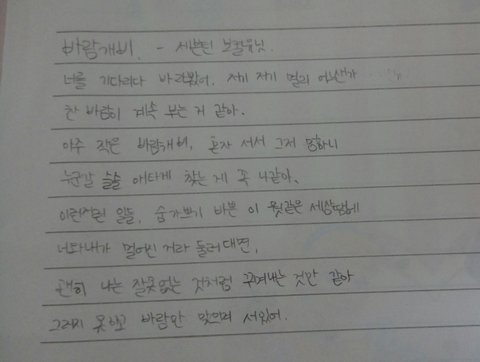 바람개비. - 세븐틴 보컬유닛.
너를 기다리다 바라봤어. 저기 저기 멀리 어딘가
찬 바람이 계속 부는 거 같아.
아주 작은 바람개비, 혼자 서서 그저 멍하니
누군갈 슬슬 애타게 찾는 게 꼭 나같아.
이런저런 일들, 숨가쁘기 바쁜 이 뭣같은 세상땜에
너와내가 멀어진 거라 둘러대면,
괜히 나는 잘못없는 것처럼 꾸며내는 것만 같아
그러지 못하고 바람만 맞으며 서있어.